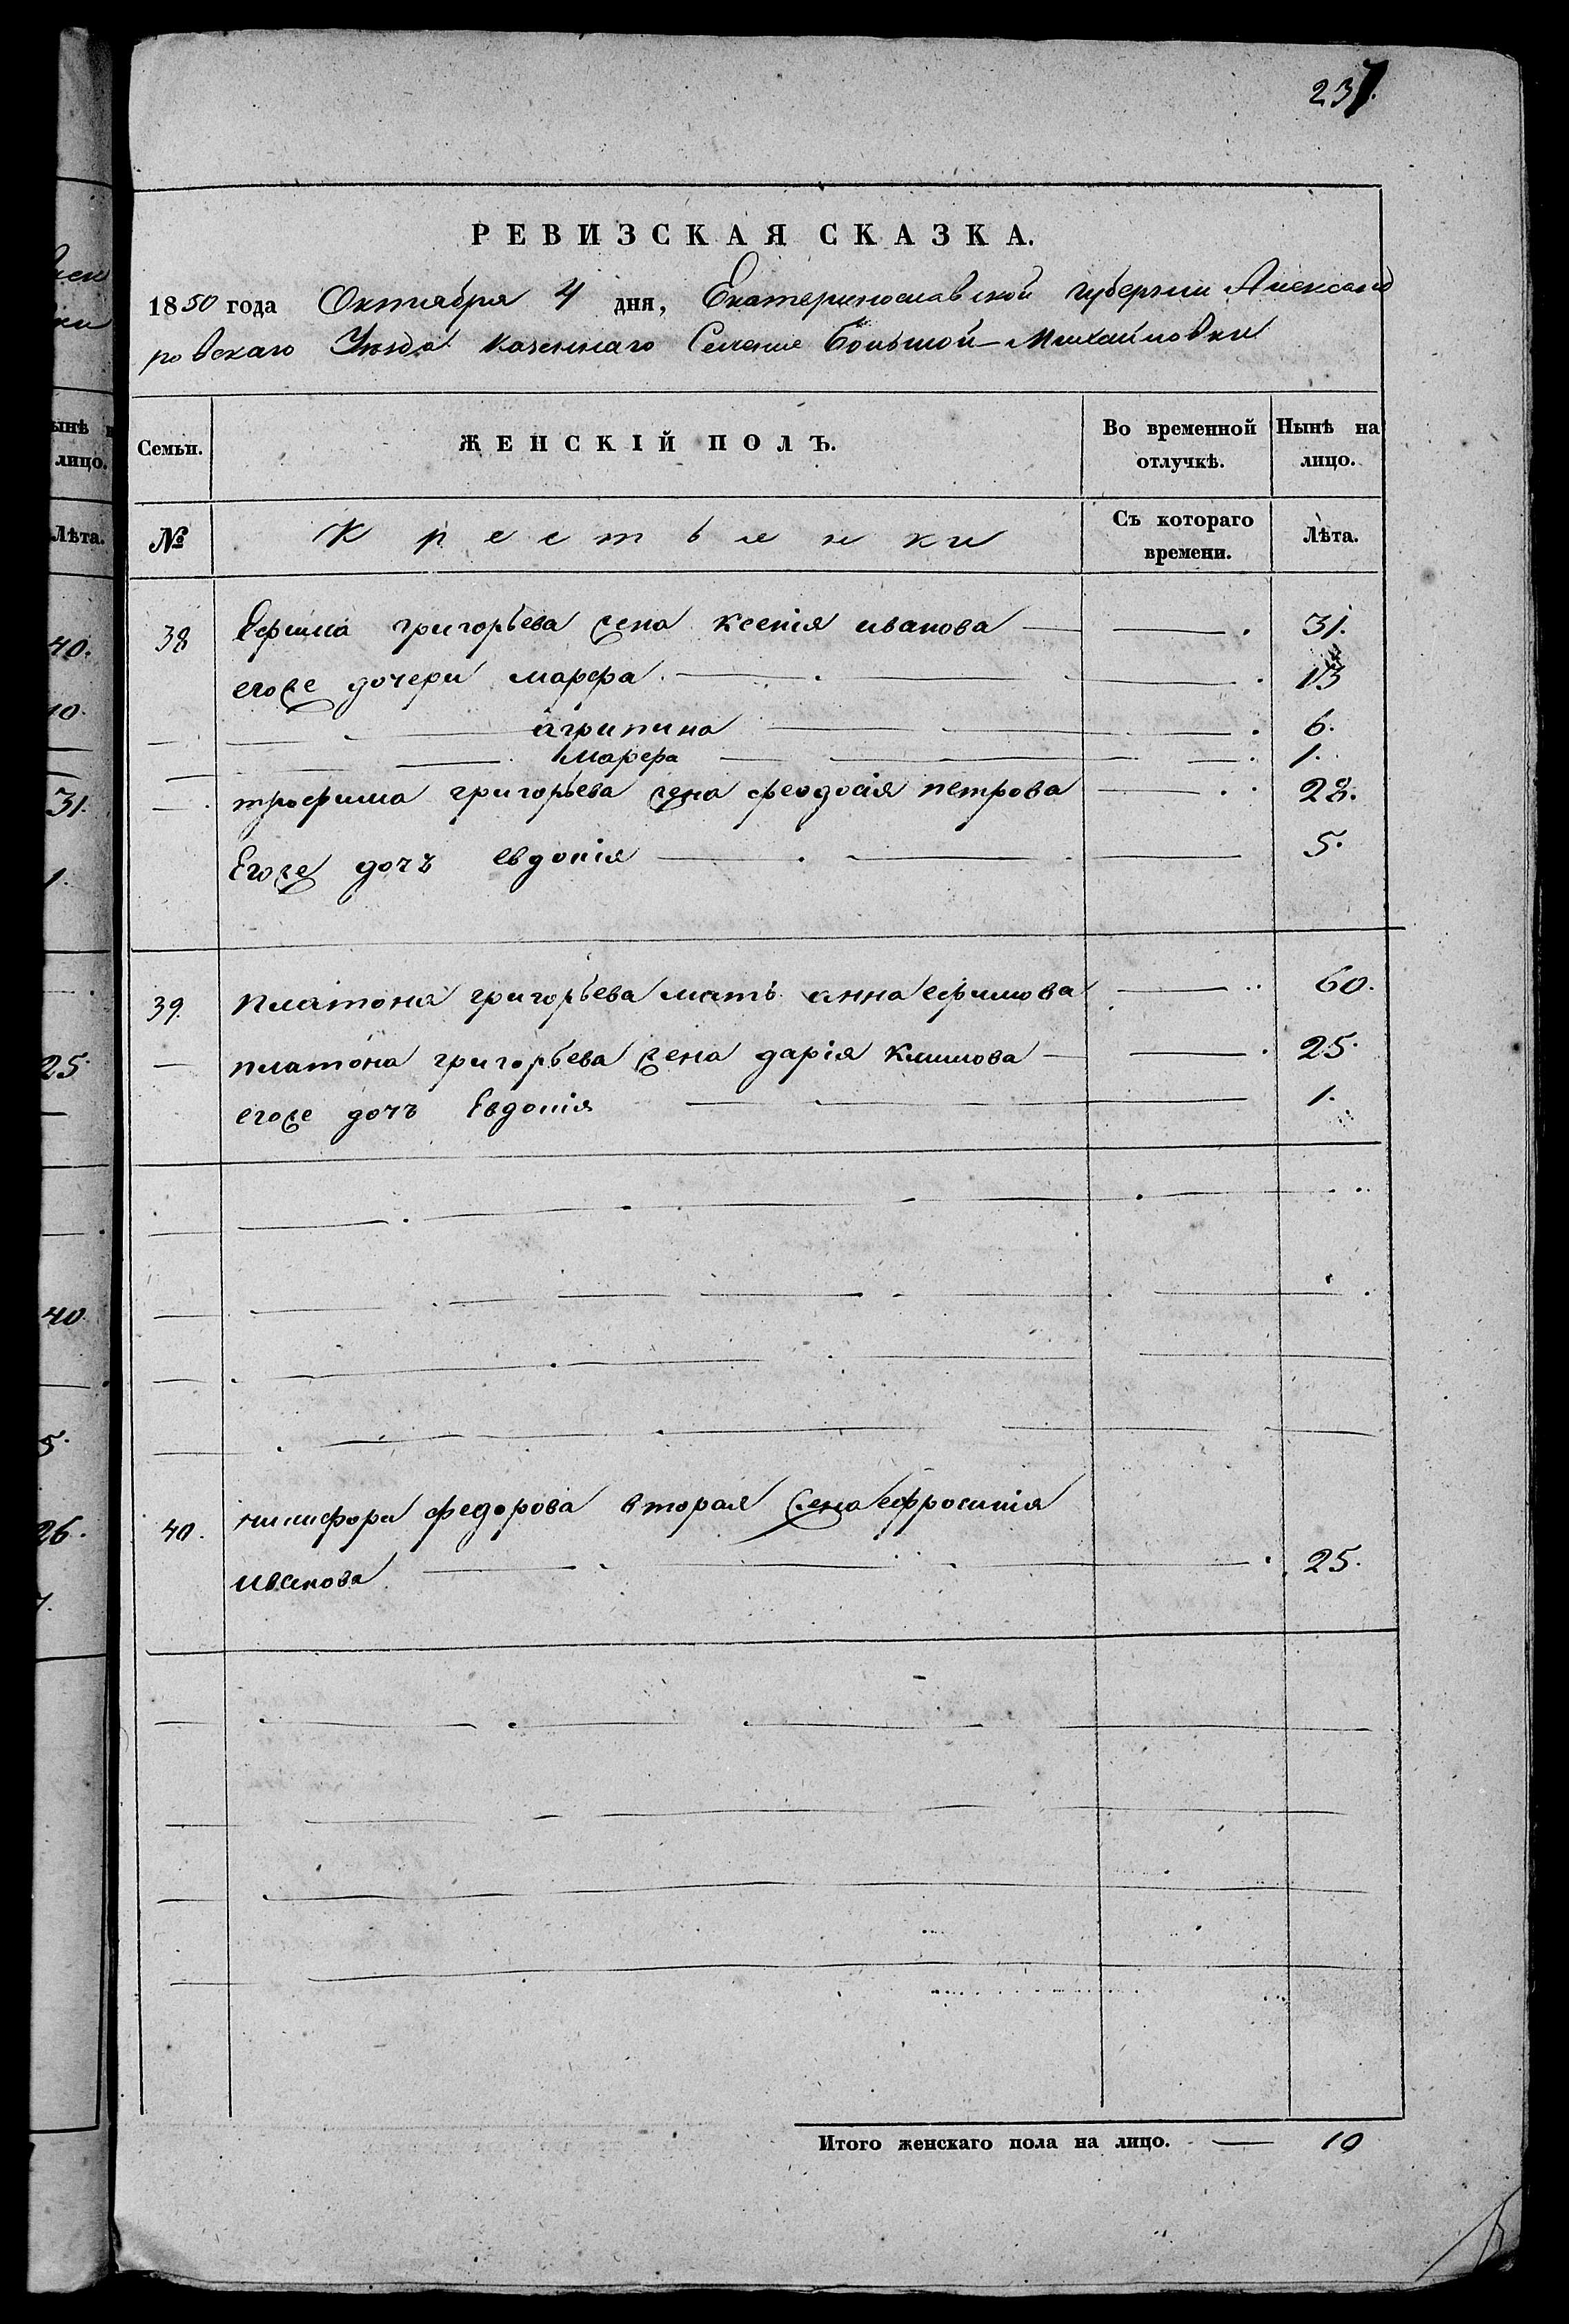 237.
РЕВИЗСКАЯ СКАЗКА.
1850 года Октября 4 дня, Екатеринославской губернии Александ
ровскаго Уезда казеннаго Селение Большой-Михайловки
Семьи. ЖЕНСКІЙ ПОЛЪ. Во временной отлучкѣ. Нынѣ на лицо.
№ Крестьянки Съ котораго времени. Лѣта.
38 Ефима григорьева жена ксенія иванова 31.
егоже дочери марфа 13
агрипина 6.
Марфа 1.
трофима григорьева жена феодосія петрова 28.
Егоже дочъ евдокія 5.
39. платона григорьева мать анна ефимова 60.
платона григорьева жена дарія климова 25.
егоже дочъ Евдокія 1.
40. никифора федорова вторая жена ефросинія
иванова 25.
Итого женскаго пола на лицо. 10
ынѣ
лицо.
Лѣта.
40.
10.
31.
1.
25
40
5.
26.